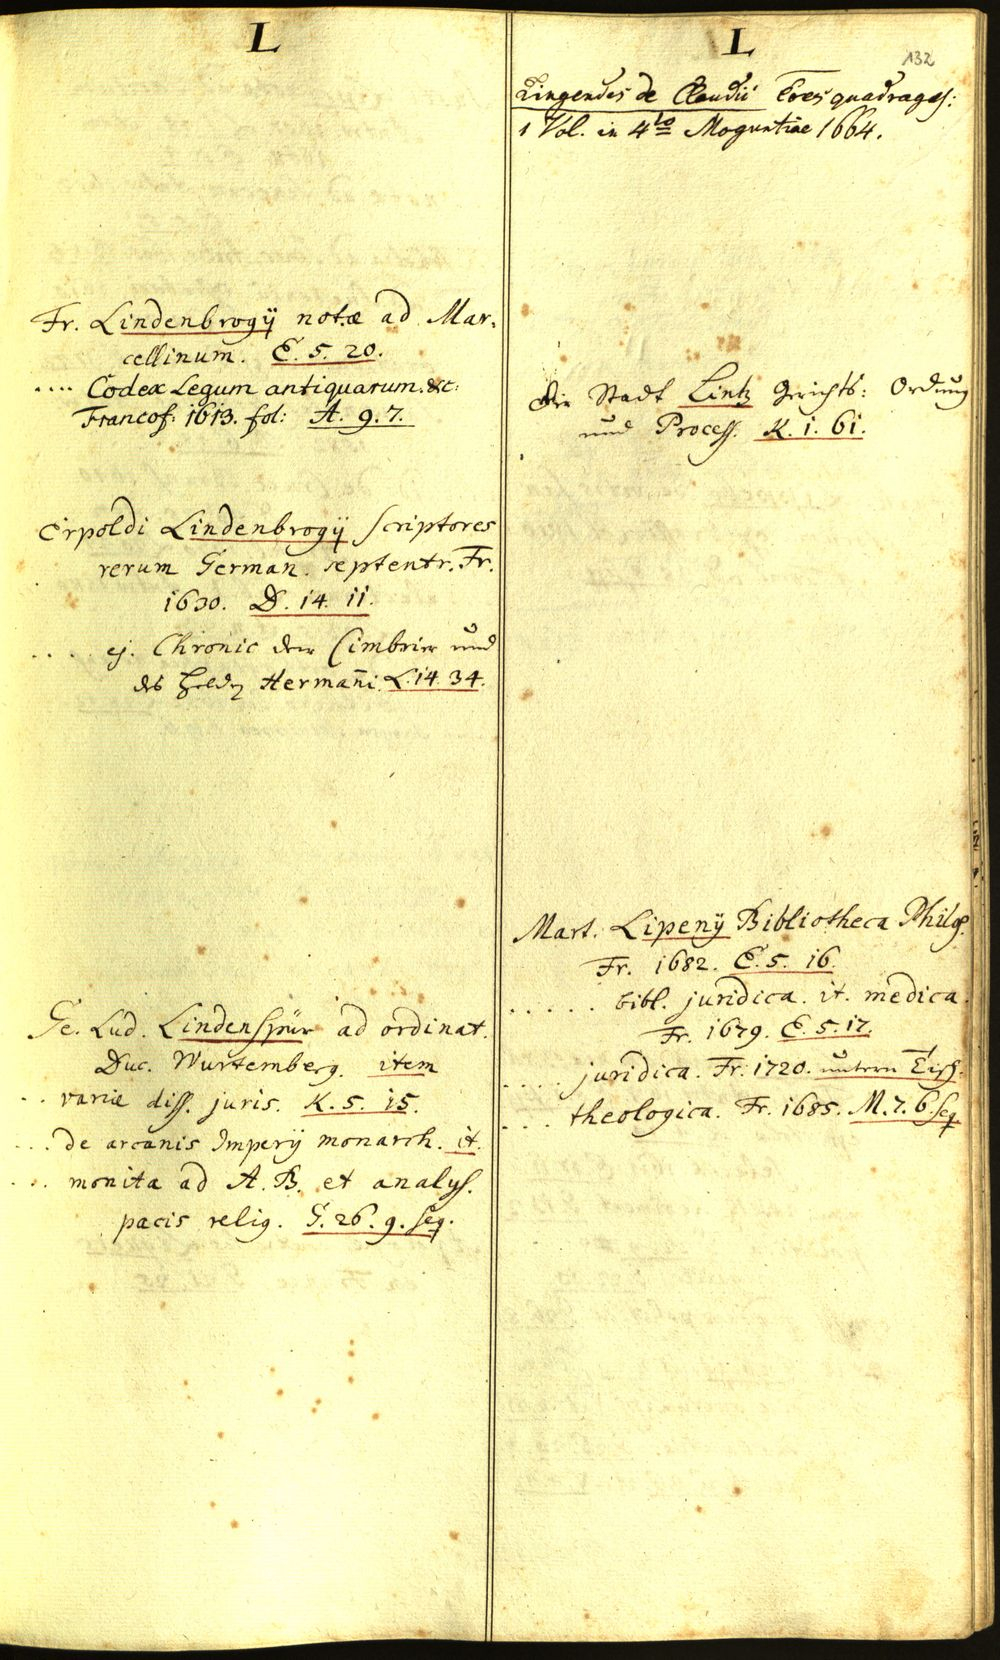 L
Fr. Lindenbrogÿ notæ ad Mar-
cellinum. E. 5. 20.
.... Codex Legum antiquarum. &c:
Francof: 1613. fol: A. 9. 7.
Erpoldi Lindenbrogÿ scriptores
rerum German. septentr. Fr.
1630. D. 14. 11.
.... ej. Chronic der Cimbrier und
des Helden Hermañi. L. 14. 34.
Ge. Lud. Lindenspür ad ordinat.
Duc. Wurtemberg. item
.. variæ diss. juris. K. 5. 15.
... de arcanis Imperÿ monarch. it.
... monita ad A. B. et analys.
pacis relig. G. 26. 9. seq.
L
132
Lingendes de Claudii Tres quadrages:
1 Vol. in 4to Moguntiae 1664.
der Stadt Lintz Gerichts: Ordnung
und Process. K. 1. 61.
Mart. Lipenÿ Bibliotheca Philos.
Fr. 1682. E. 5. 16.
..... bibl. juridica. it. medica.
Fr. 1679. E. 5. 17.
.... juridica. Fr. 1720. untern Tisch.
.... theologica. Fr. 1685. M. 7. 6. seq